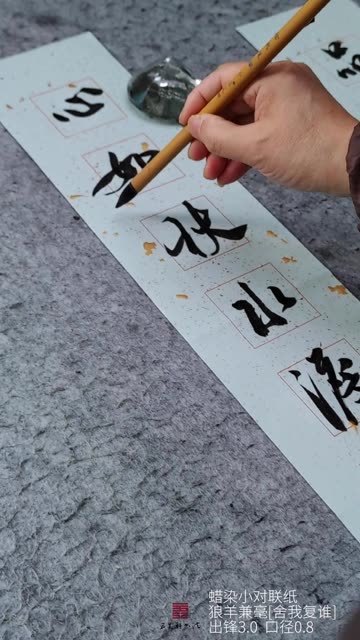 心如秋水
品
蜡染小对联纸
狼羊兼毫[舍我复谁]
出锋3.0 口径0.8